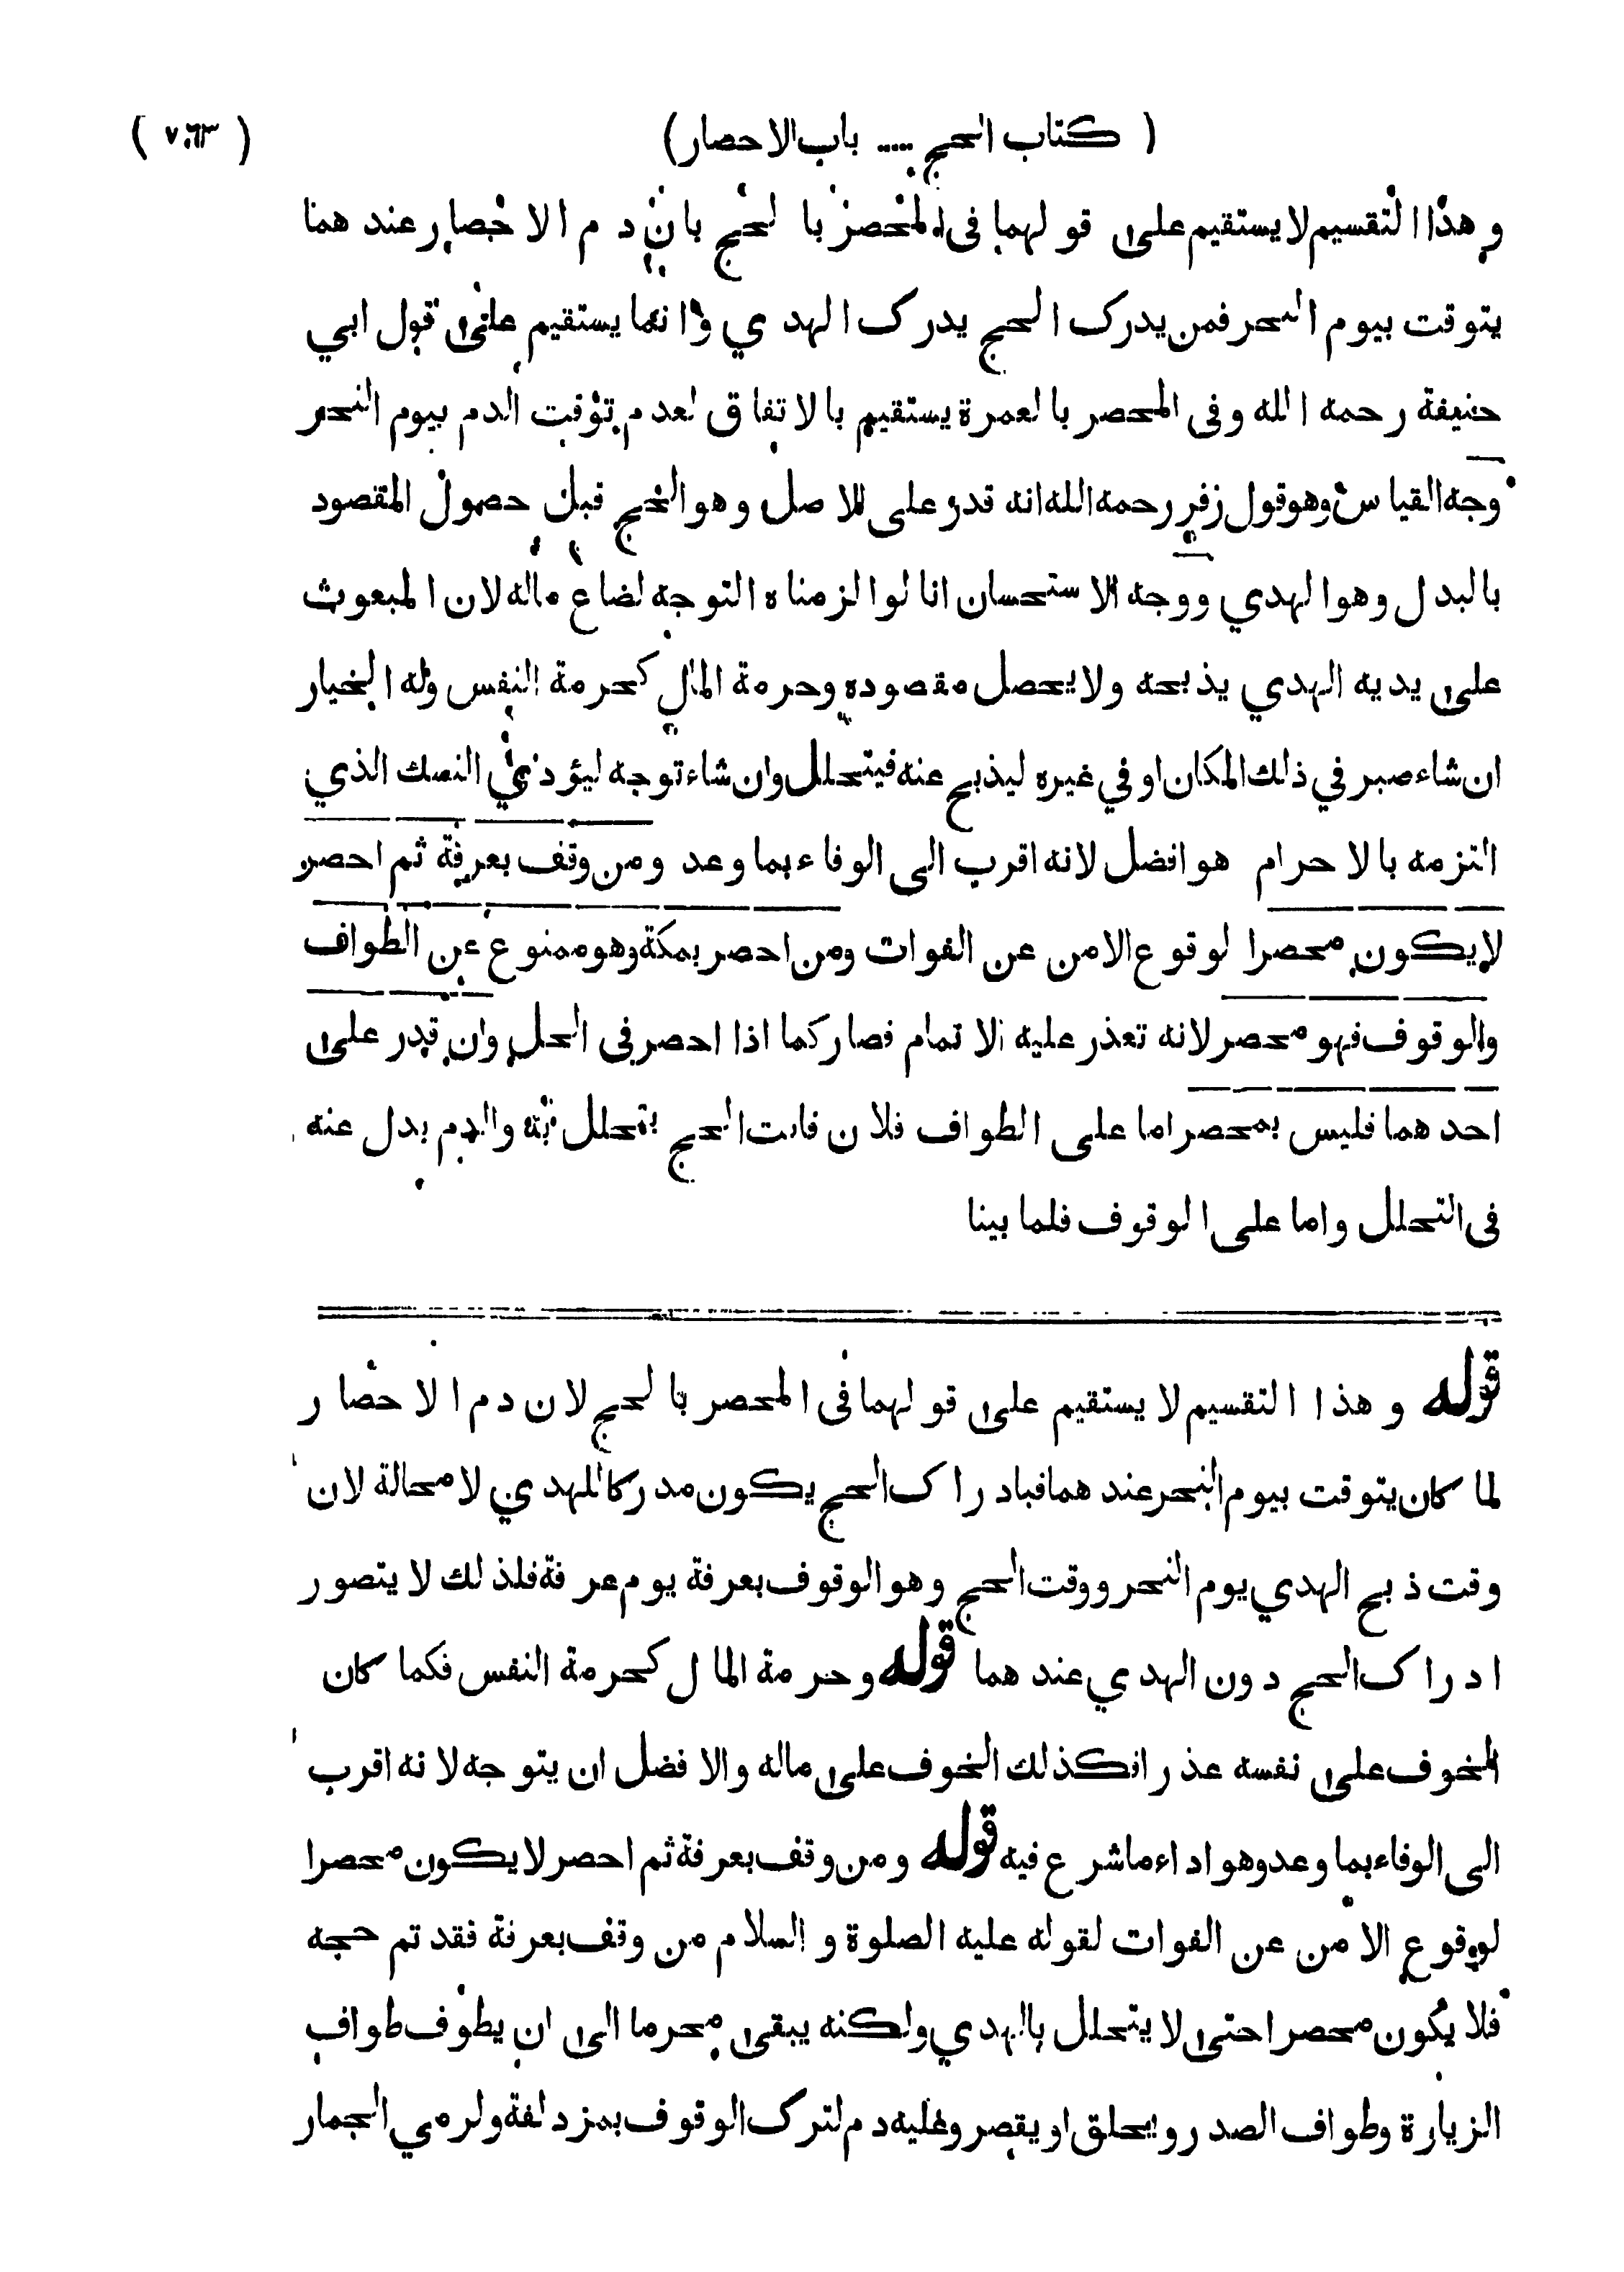 ( كتاب الحج ..... باب الاحصار) ( ٧٠٦٣ )
وهذا التقسيم لا يستقيم على قولهما فى المحصر بالحج بان دم الاحصار عندهما
يتوقت بيوم النحر فمن يدرك الحج يدرك الهدي وانما يستقيم على قول ابي
حنيفة رحمه الله وفى المحصر بالعمرة يستقيم بالاتفاق لعدم توقت الدم بيوم النحر
وجه القياس وهو قول زفر رحمه الله انه قدر على الاصل وهو الحج قبل حصول المقصود
بالبدل وهو الهدي ووجه الاستحسان انا لو الزمناه التوجه لضاع ماله لان المبعوث
على يديه الهدي يذبحه ولا يحصل مقصوده وحرمة المال كحرمة النفس وله الخيار
ان شاء صبر في ذلك المكان او في غيره ليذبح عنه فيتحلل وان شاء توجه ليؤدي النسك الذي
التزمه بالاحرام هو افضل لانه اقرب الى الوفاء بما وعد ومن وقف بعرفة ثم احصر
لا يكون محصرا لوقوع الامن عن الفوات ومن احصر بمكة وهو ممنوع عن الطواف
والوقوف فهو محصر لانه تعذر عليه الاتمام فصار كما اذا احصر فى الحل وان قدر على
احدهما فليس بمحصر اما على الطواف فلان فائت الحج يتحلل به والدم بدل عنه
فى التحلل واما على الوقوف فلما بينا
قوله وهذا التقسيم لا يستقيم على قولهما فى المحصر بالحج لان دم الاحصار
لما كان يتوقت بيوم النحر عندهما فبادراك الحج يكون مدركا للهدي لا محالة لان
وقت ذبح الهدي يوم النحر ووقت الحج وهو الوقوف بعرفة يوم عرفة فلذلك لا يتصور
ادراك الحج دون الهدي عندهما قوله وحرمة المال كحرمة النفس فكما كان
الخوف على نفسه عذرا فكذلك الخوف على ماله والافضل ان يتوجه لانه اقرب
الى الوفاء بما وعد وهو اداء ما شرع فيه قوله ومن وقف بعرفة ثم احصر لا يكون محصرا
لوقوع الامن عن الفوات لقوله عليه الصلوة والسلام من وقف بعرفة فقد تم حجه
فلا يكون محصرا حتى لا يتحلل بالهدي ولكنه يبقى محرما الى ان يطوف طواف
الزيارة وطواف الصدر ويحلق او يقصر وعليه دم لترك الوقوف بمزدلفة ولرمي الجمار